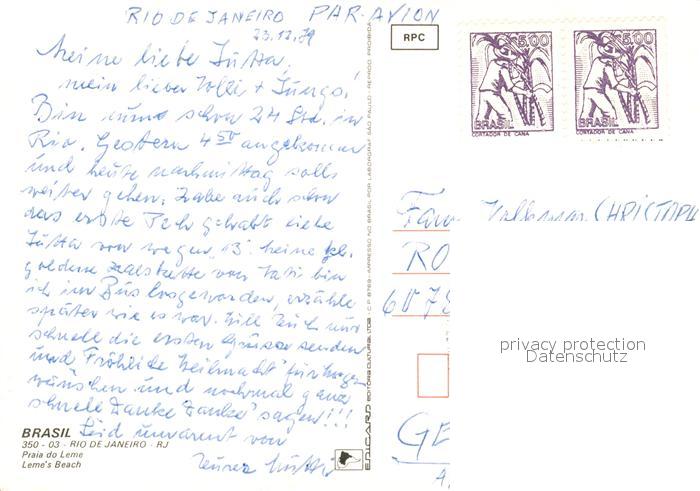 RIO DE JANEIRO PAR AVION
23.12.79
Meine liebe Jutta,
mein lieber Volli + Jungs!
Bin nun schon 24 Std. in
Rio. Gestern 4 50 angekommen
und heute nachmittag solls
weiter gehen. Habe auch schon
das erste Pech gehabt liebe
Jutta von wegen "13". Meine
goldene Halskette von Vati bin
ich im Bus losgeworden, erzähle
später wie es war. Will Euch nur
schnell die ersten Grüsse senden
und "Fröhliche Weihnacht" für morgen
wünschen und nochmal ganz
schnell "Danke Danke" sagen!!!
Seid umarmt von
Eurer Mutti
BRASIL
350 - 03 - RIO DE JANEIRO - RJ
Praia do Leme
Leme's Beach
EDICARD EDITORA CULTURAL LTDA. - C.P. 8769 - IMPRESSO NO BRASIL POR LABORGRAF SÃO PAULO - REPROD. PROIBIDA
RPC
5,00
BRASIL
CORTADOR DE CANA
5,00
BRASIL
CORTADOR DE CANA
Fam. Volkmar CHRISTAPH
RO
6078
GE
privacy protection
Datenschutz